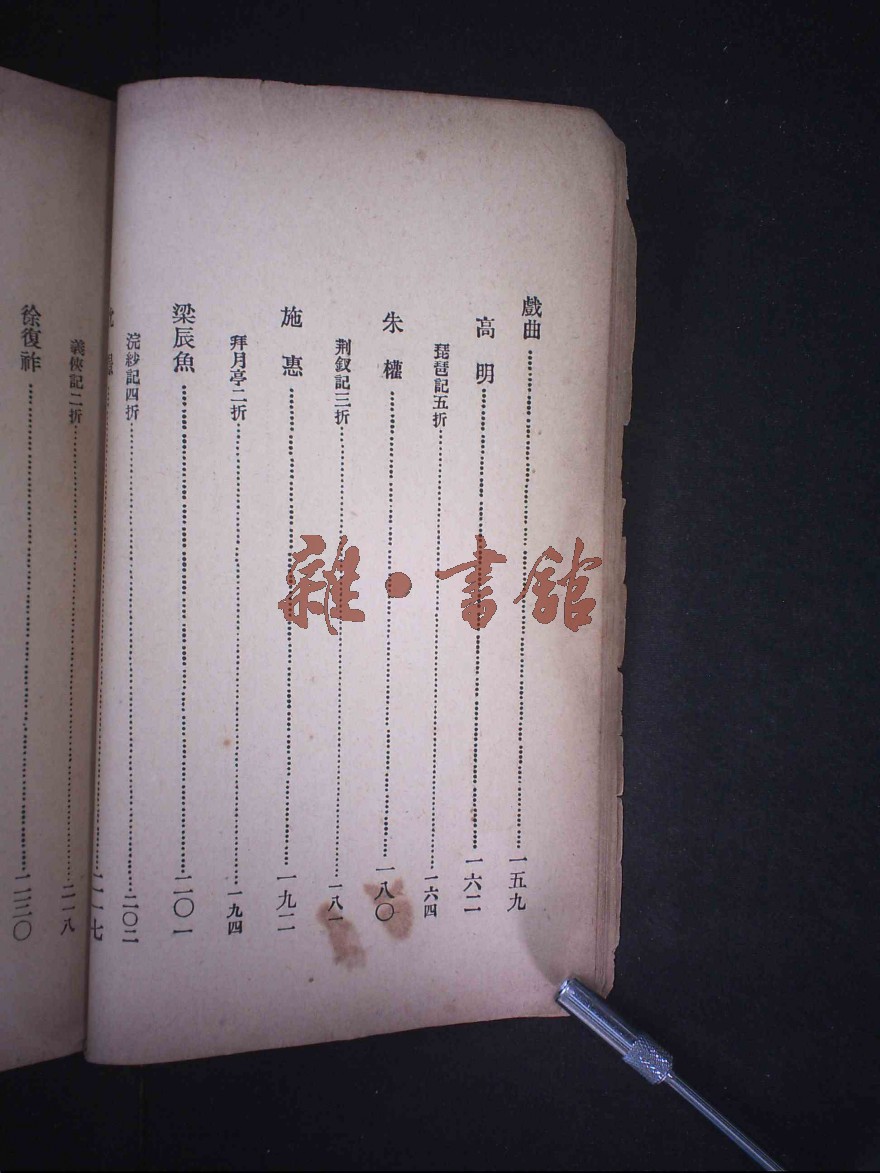 戲曲……一五九
高明……一六二
琵琶記五折……一六四
朱權……一八〇
荆釵記三折……一八一
施惠……一九二
拜月亭二折……一九四
梁辰魚……二〇一
浣紗記四折……二〇二
二一七
義俠記二折……二一八
徐復祚……二三〇
雜·書館